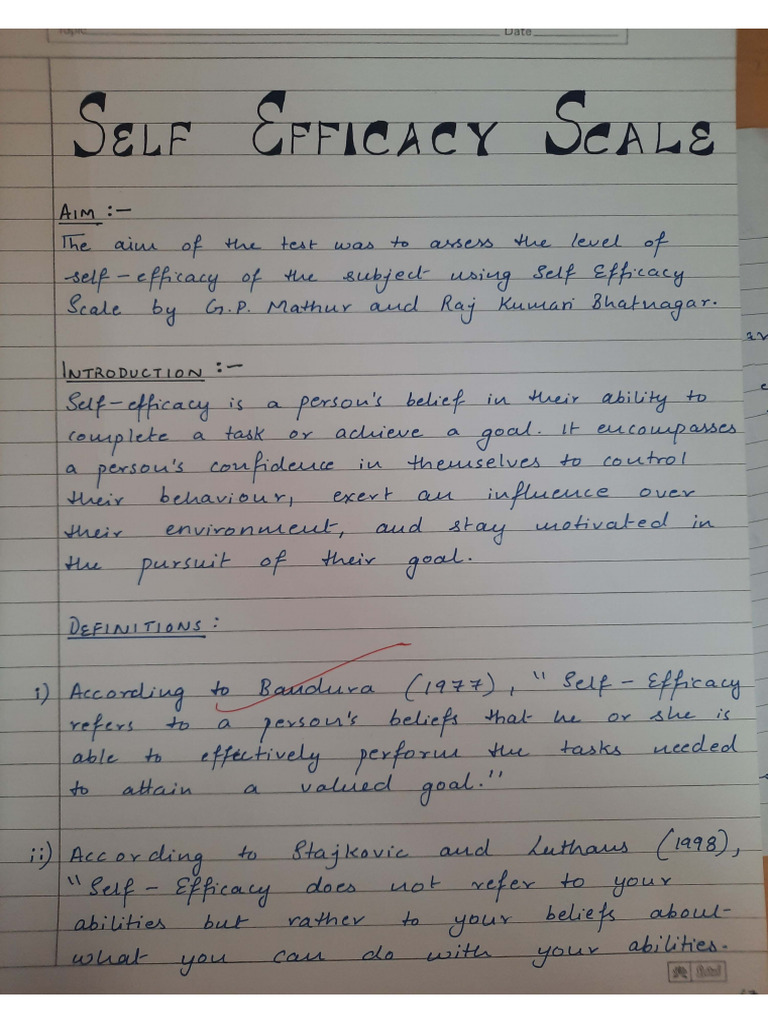 Date
SELF EFFICACY SCALE
AIM :-
The aim of the test was to assess the level of
self-efficacy of the subject using Self Efficacy
Scale by G.P. Mathur and Raj Kumari Bhatnagar.
INTRODUCTION :-
Self-efficacy is a person's belief in their ability to
complete a task or achieve a goal. It encompasses
a person's confidence in themselves to control
their behaviour, exert an influence over
their environment, and stay motivated in
the pursuit of their goal.
DEFINITIONS :
i) According to Bandura (1977), "Self-Efficacy
refers to a person's beliefs that he or she is
able to effectively perform the tasks needed
to attain a valued goal."
ii) According to Stajkovic and Luthans (1998),
"Self-Efficacy does not refer to your
abilities but rather to your beliefs about
what you can do with your abilities.